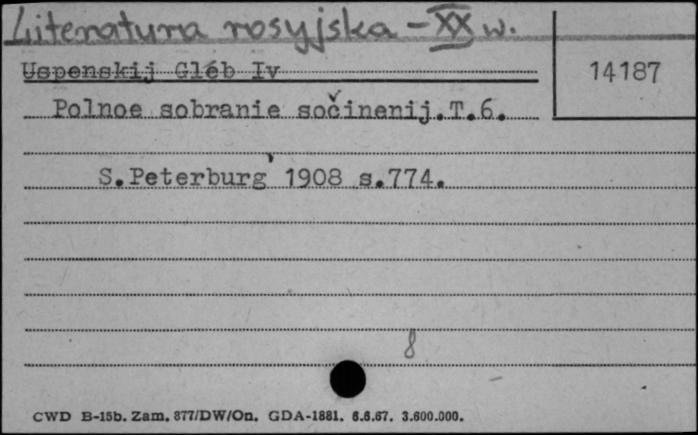 Literatura rosyjska - XX w.
Uspenskij Gléb Iv
14187
Polnoe sobranie sočinenij.T.6.
S.Peterburg' 1908 s.774.
8
CWD B-15b. Zam. 877/DW/On. GDA-1881. 6.6.67. 3.600.000.